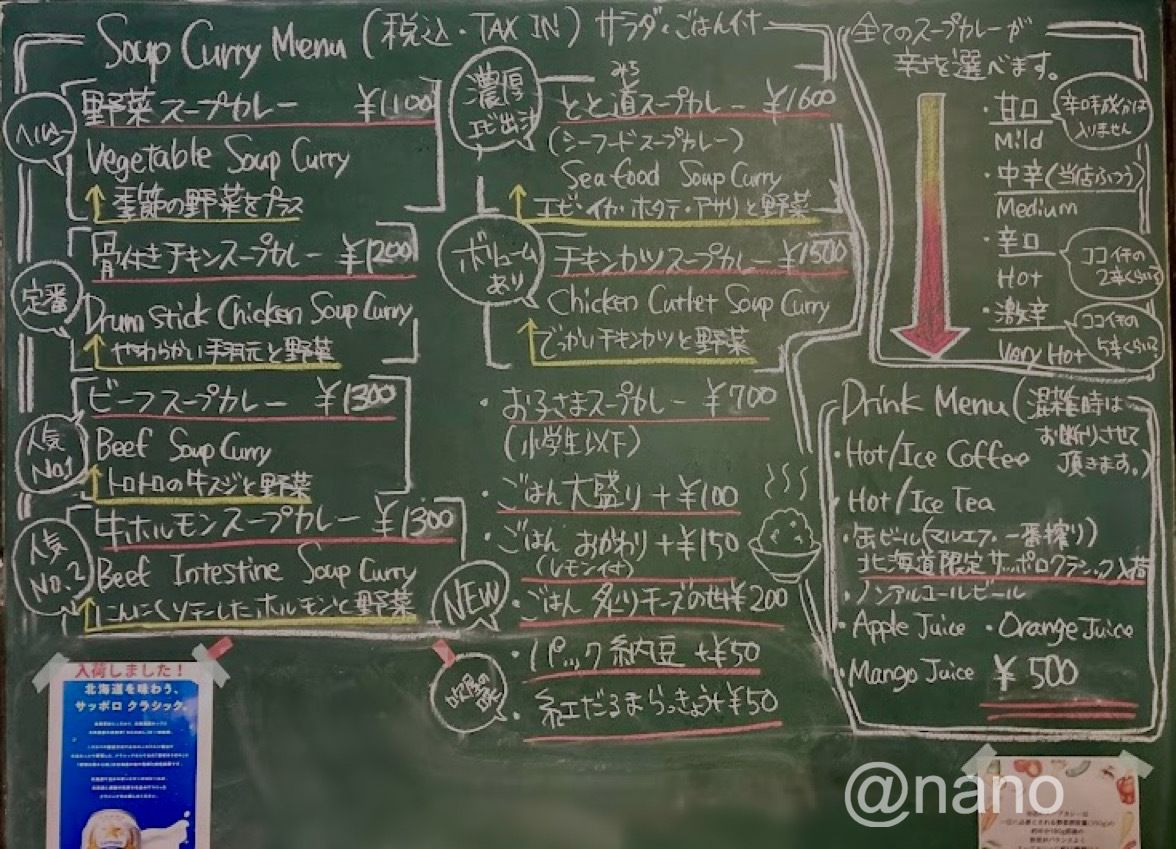 Soup Curry Menu (税込・TAX IN) サラダ・ごはん付
ヘルシー
野菜スープカレー ¥1100
Vegetable Soup Curry
季節の野菜をプラス
定番
骨付きチキンスープカレー ¥1200
Drum stick Chicken Soup Curry
やわらかい手羽元と野菜
人気
No.1
ビーフスープカレー ¥1300
Beef Soup Curry
トロトロの牛スジと野菜
人気
No.2
牛ホルモンスープカレー ¥1300
Beef Intestine Soup Curry
にんにくソテーしたホルモンと野菜
濃厚
エビ出汁
みち
とと道スープカレー ¥1600
(シーフードスープカレー)
Seafood Soup Curry
エビ・イカ・ホタテ・アサリと野菜
ボリューム
あり
チキンカツスープカレー ¥1500
Chicken Cutlet Soup Curry
でっかいチキンカツと野菜
・お子さまスープカレー ¥700
(小学生以下)
・ごはん大盛り+¥100
・ごはんおかわり+¥150
(レモン付)
NEW
・ごはん炙りチーズのせ¥200
・パック納豆+¥50
・紅だるまらっきょう+¥50
全てのスープカレーが
辛さを選べます。
・甘口
Mild
辛口味成分は
入りません
・中辛(当店ふつう)
Medium
・辛口
Hot
ココイチの
2辛くらい
・激辛
Very Hot
ココイチの
5辛くらい
Drink Menu (混雑時は
お断りさせて
頂きます。)
・Hot/Ice Coffee
・Hot/Ice Tea
・缶ビール(マルエフ・一番搾り)
北海道限定サッポロクラシック入荷
・ノンアルコールビール
・Apple Juice ・Orange Juice
・Mango Juice ¥500
入荷しました!
北海道を味わう、
サッポロ クラシック。
@nano